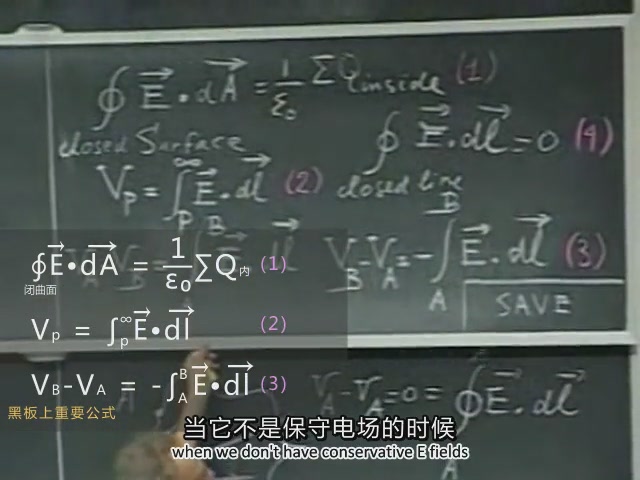 ∮ E⃗ • dA⃗ = 1/ε₀ ΣQ inside (1)
closed Surface
∮ E⃗ • dl⃗ = 0 (4)
closed line
V_P = ∫_P^∞ E⃗ • dl⃗ (2)
V_B - V_A = -∫_A^B E⃗ • dl⃗ (3)
SAVE
V_A - V_A = 0 = ∮ E⃗ • dl⃗
∮E⃗•dA⃗ = 1/ε₀ ∑Q内 (1)
闭曲面
Vₚ = ∫_p^∞ E⃗•dl⃗ (2)
V_B-V_A = -∫_A^B E⃗•dl⃗ (3)
黑板上重要公式
当它不是保守电场的时候
when we don't have conservative E fields